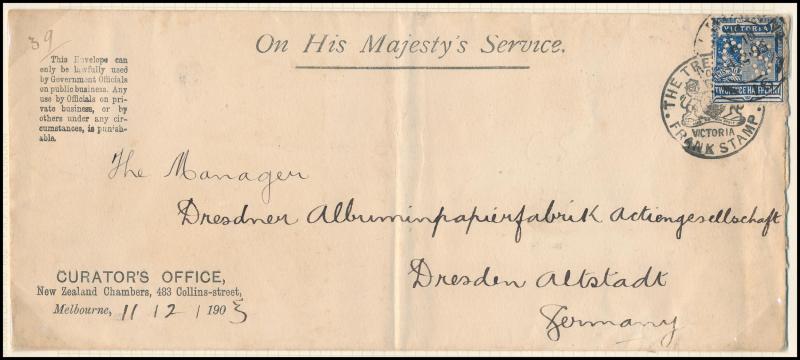 39
On His Majesty's Service.
This Envelope can
only be lawfully used
by Government Officials
on public business. Any
use by Officials on pri-
vate business, or by
others under any cir-
cumstances, is punish-
able.
VICTORIA
TWOPENCE HALFPENNY
THE TRE
VICTORIA
FRANK STAMP
The Manager
Dresdner Albuminpapierfabrik Actiengesellschaft
Dresden Altstadt
Germany
CURATOR'S OFFICE,
New Zealand Chambers, 483 Collins-street,
Melbourne, 11 / 2 / 1903